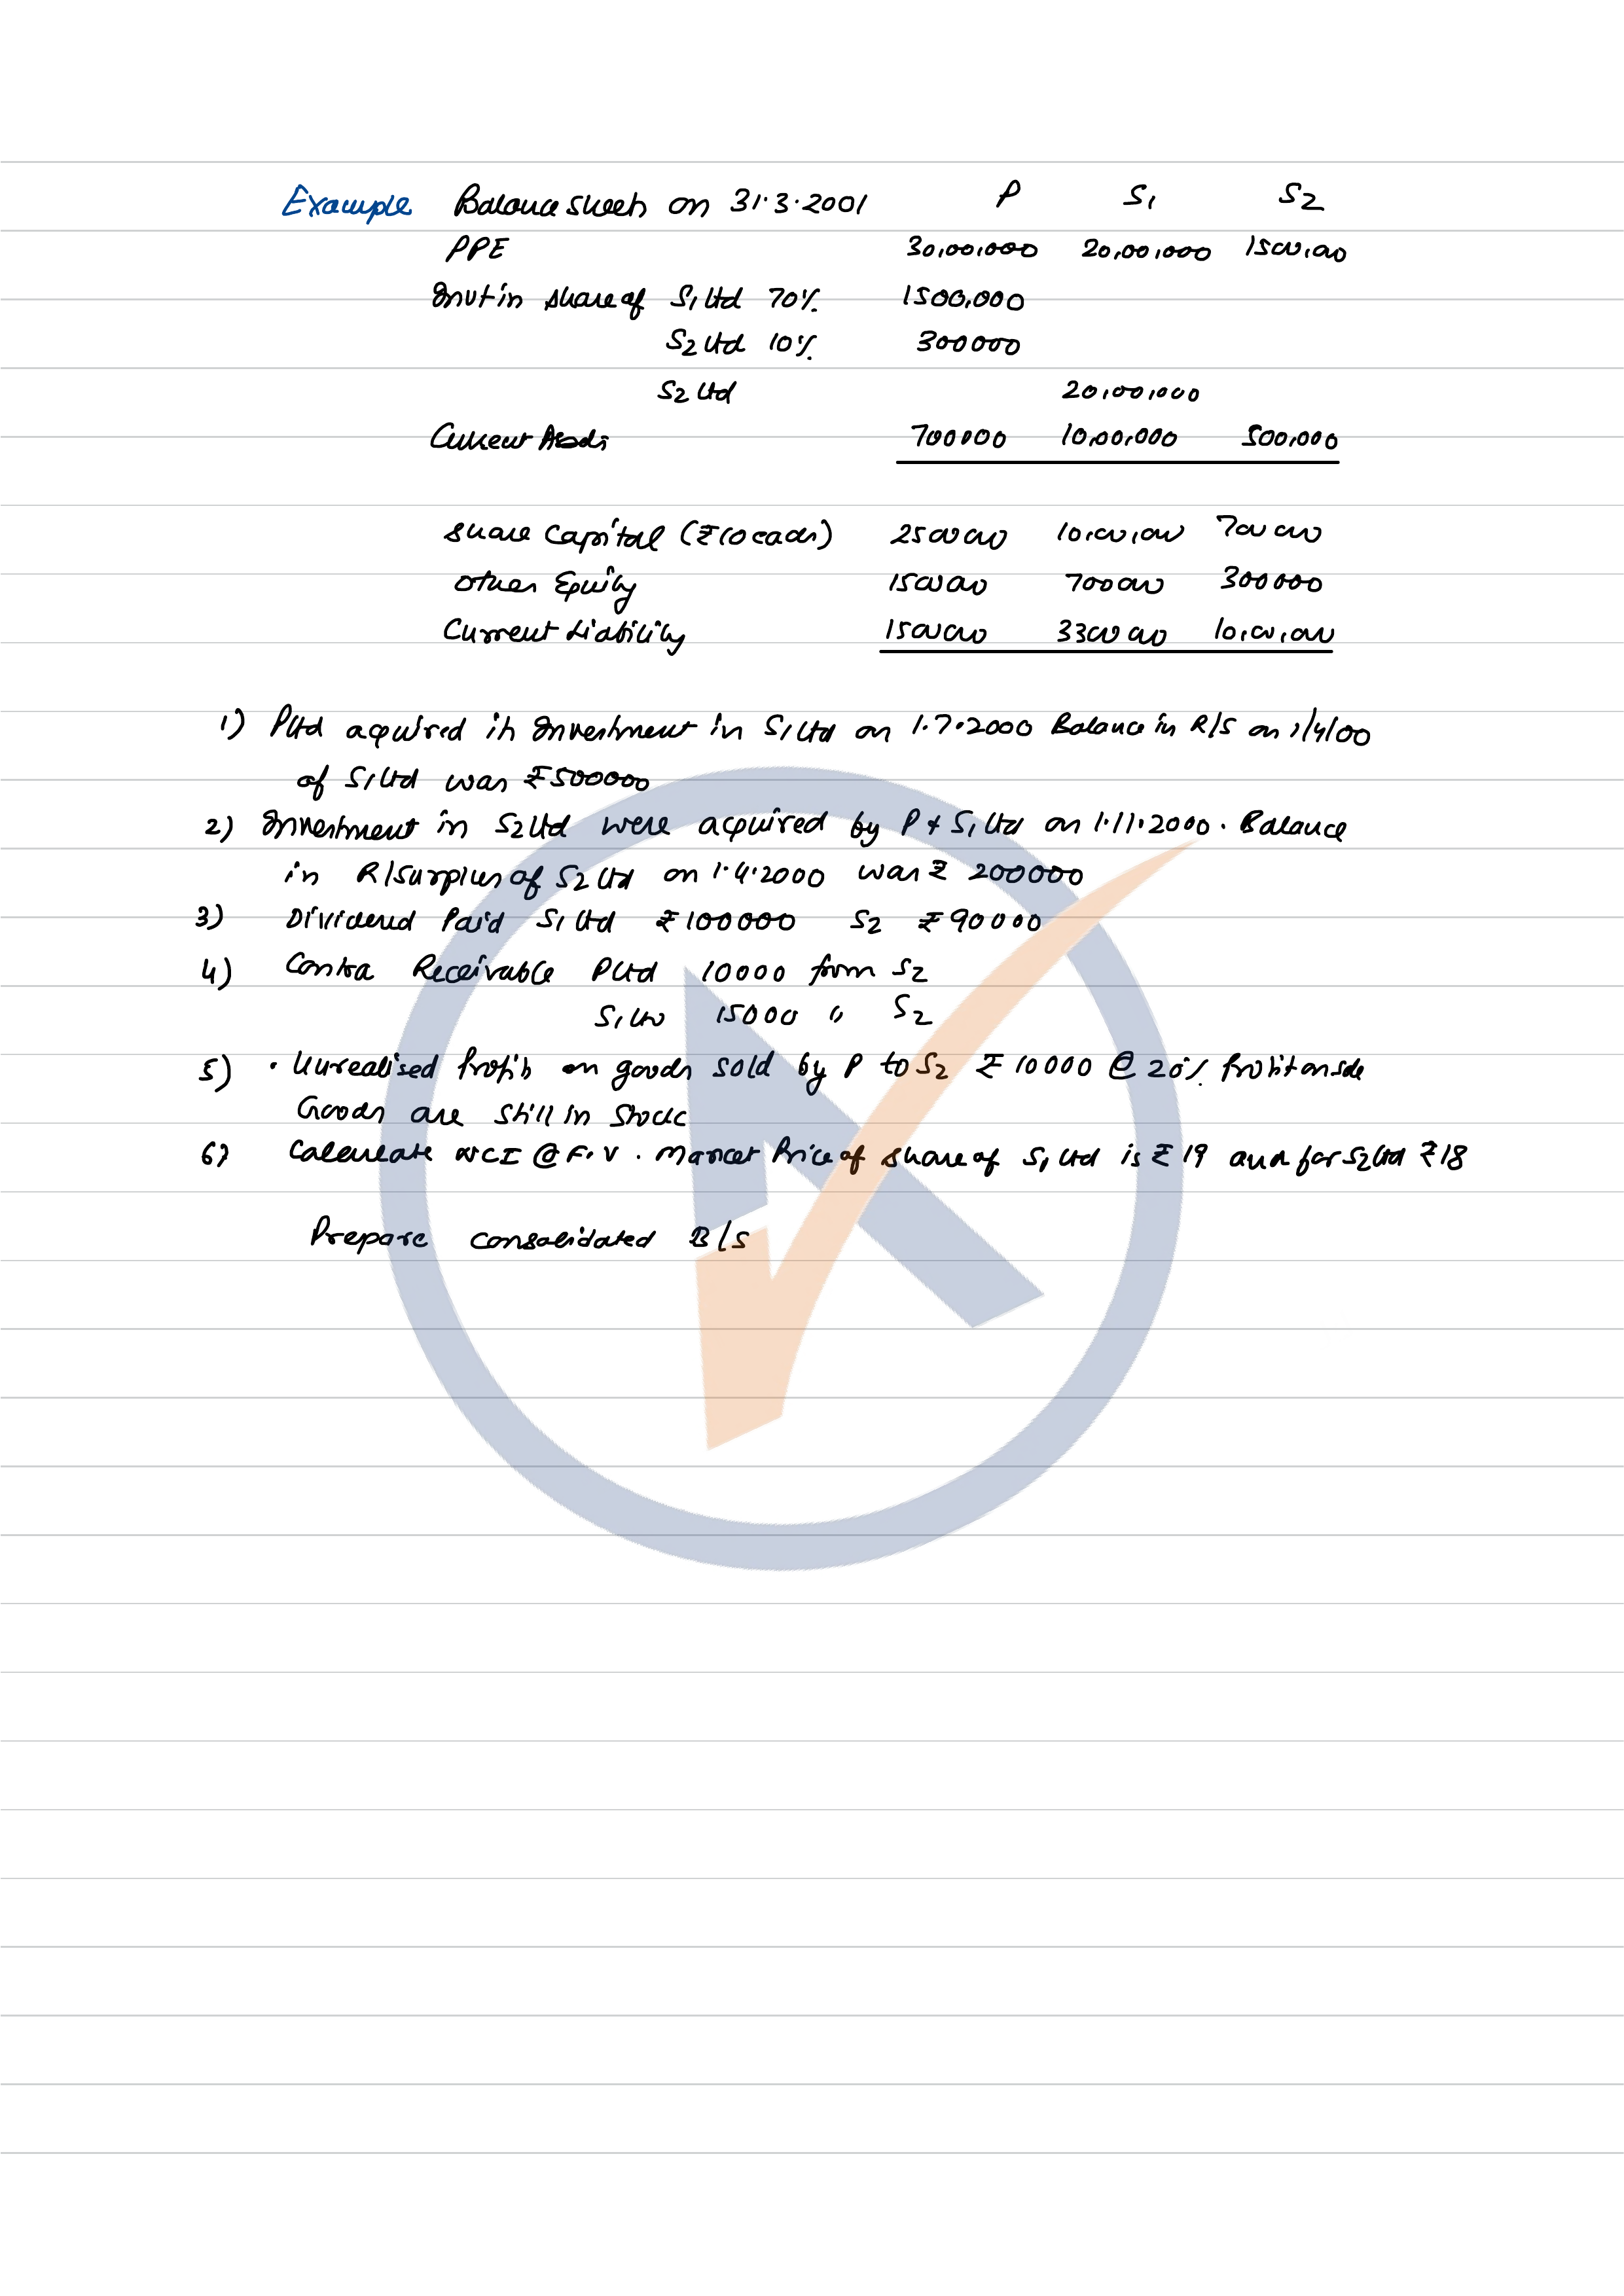 Example Balance sheets on 31.3.2001 P S1 S2
PPE 30,00,000 20,00,000 1500,000
Invt in share of S1 Ltd 70% 1500,000
S2 Ltd 10% 300000
S2 Ltd 20,00,000
Current Assets 700000 10,00,000 500,000
Share Capital (₹10 each) 2500000 10,00,000 700000
Other Equity 1500000 700000 300000
Current Liability 1500000 3300000 10,00,000
1) P Ltd acquired its Investment in S1 Ltd on 1.7.2000 Balance in R/S on 1/4/00
of S1 Ltd was ₹500000
2) Investment in S2 Ltd were acquired by P & S1 Ltd on 1.11.2000. Balance
in R/Surplus of S2 Ltd on 1.4.2000 was ₹ 200000
3) Dividend Paid S1 Ltd ₹100000 S2 ₹90000
4) Contra Receivable P Ltd 10000 from S2
S1 Ltd 15000 " S2
5) • Unrealised Profits on goods sold by P to S2 ₹ 10000 @ 20% Profit on sale
Goods are still in Stock
6) Calculate NCI @ F.V. Market Price of share of S1 Ltd is ₹19 and for S2 Ltd ₹18
Prepare consolidated B/S